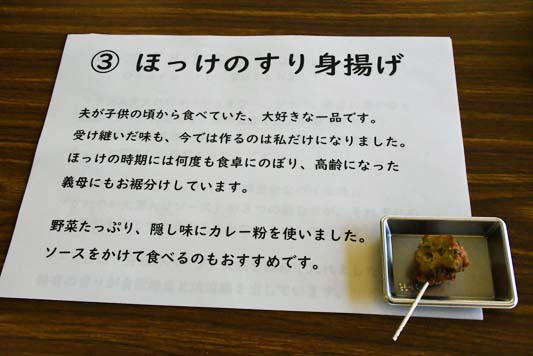 ③ ほっけのすり身揚げ
夫が子供の頃から食べていた、大好きな一品です。
受け継いだ味も、今では作るのは私だけになりました。
ほっけの時期には何度も食卓にのぼり、高齢になった
義母にもお裾分けしています。
野菜たっぷり、隠し味にカレー粉を使いました。
ソースをかけて食べるのもおすすめです。